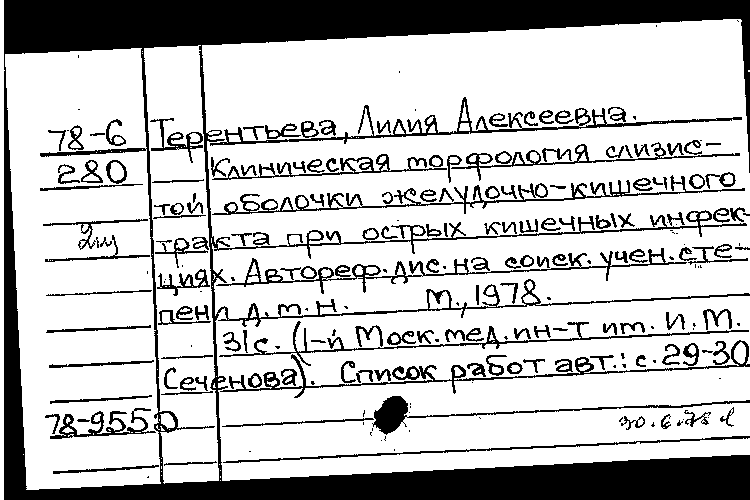 78-6 Терентьева, Лилия Алексеевна.
280 Клиническая морфология слизис-
той оболочки желудочно-кишечного
тракта при острых кишечных инфек-
циях. Автореф. дис. на соиск. учен. сте-
пени д. м. н. М., 1978.
31с. (1-й Моск. мед. ин-т им. И. М.
Сеченова). Список работ авт.: с. 29-30
78-9552
30.6.78